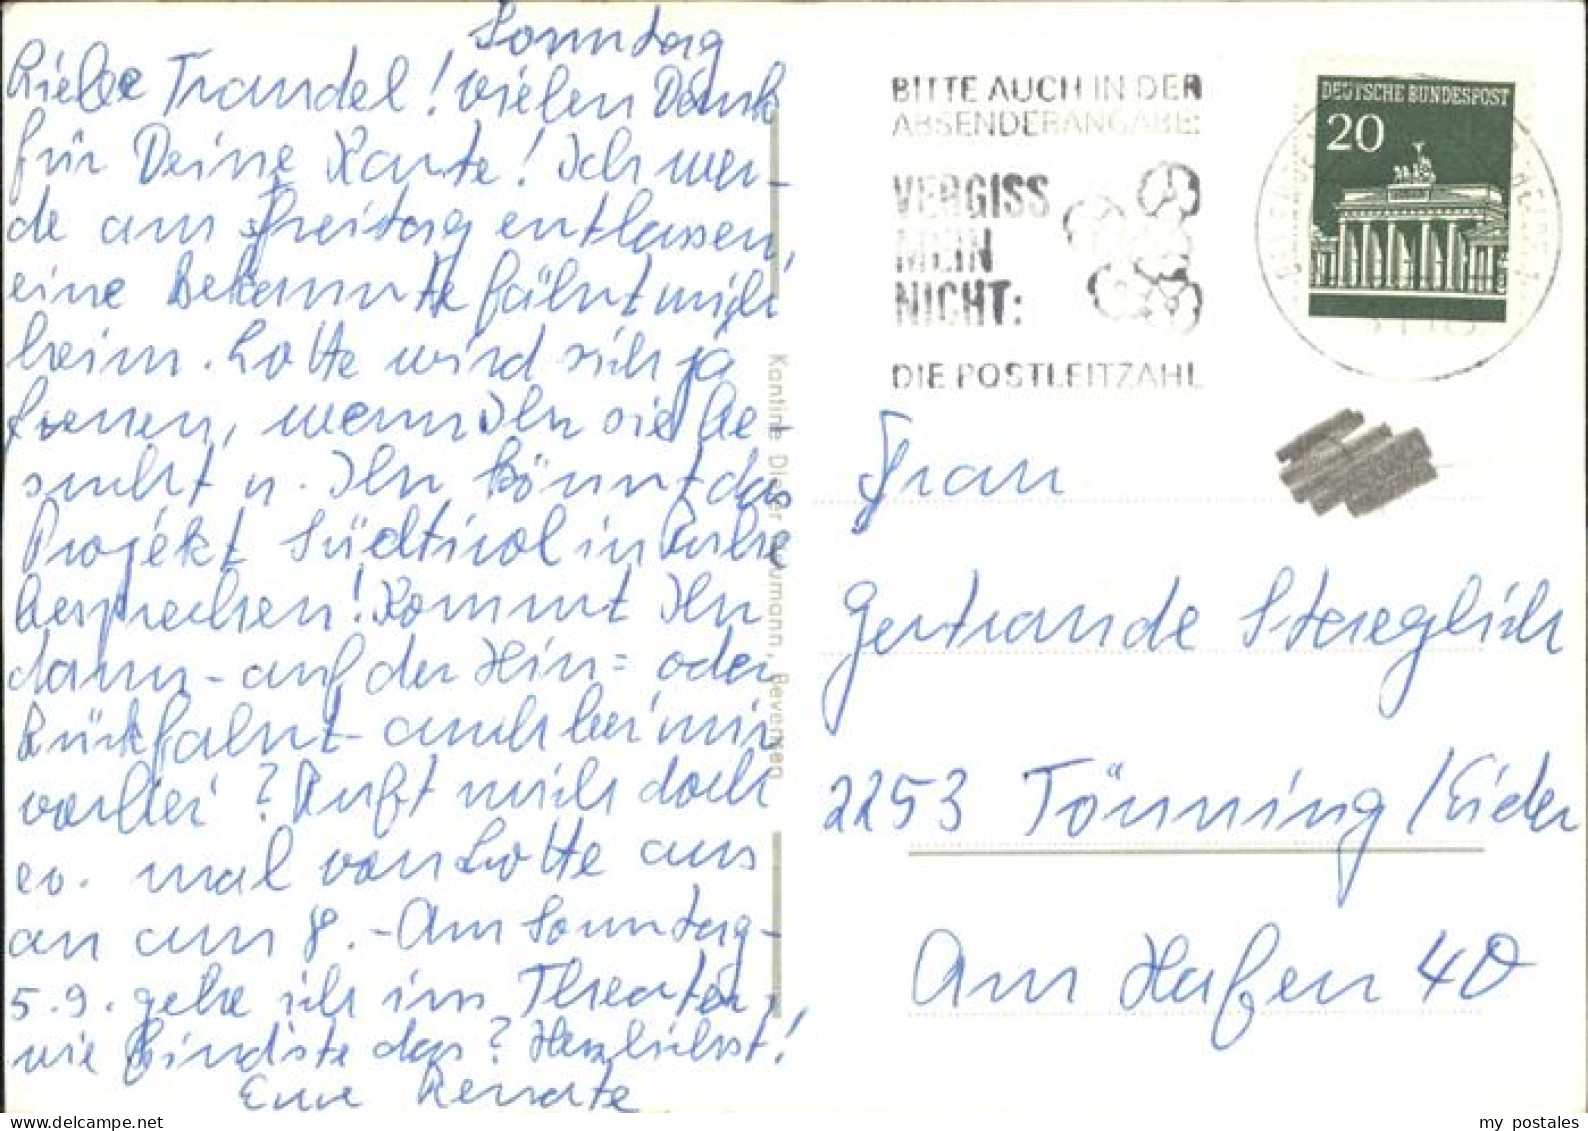 Sonntag
Liebe Traudel! Vielen Dank
für Deine Karte! Ich wer-
de am Freitag entlassen,
eine Bekannte fährt mich
heim. Lotte wird sich ja
freuen, wenn Ihr sie be-
sucht u. Ihr könnt das
Projekt Südtirol in Ruhe
besprechen! Kommt Ihr
dann - auf der Hin= oder
Rückfahrt - auch bei mir
vorbei? Ruft mich doch
ev. mal von Lotte aus
an am 8. - Am Sonntag -
5.9. gehe ich ins Theater,
wie findste das? Herzlichst!
Eure Renate
Kantine Dieter Baumann, Bevensen
BITTE AUCH IN DER
ABSENDERANGABE:
VERGISS
MEIN
NICHT:
DIE POSTLEITZAHL
DEUTSCHE BUNDESPOST
20
Frau
Gertraude
2253 Tönning / Eider
Am Hafen 40
my postales